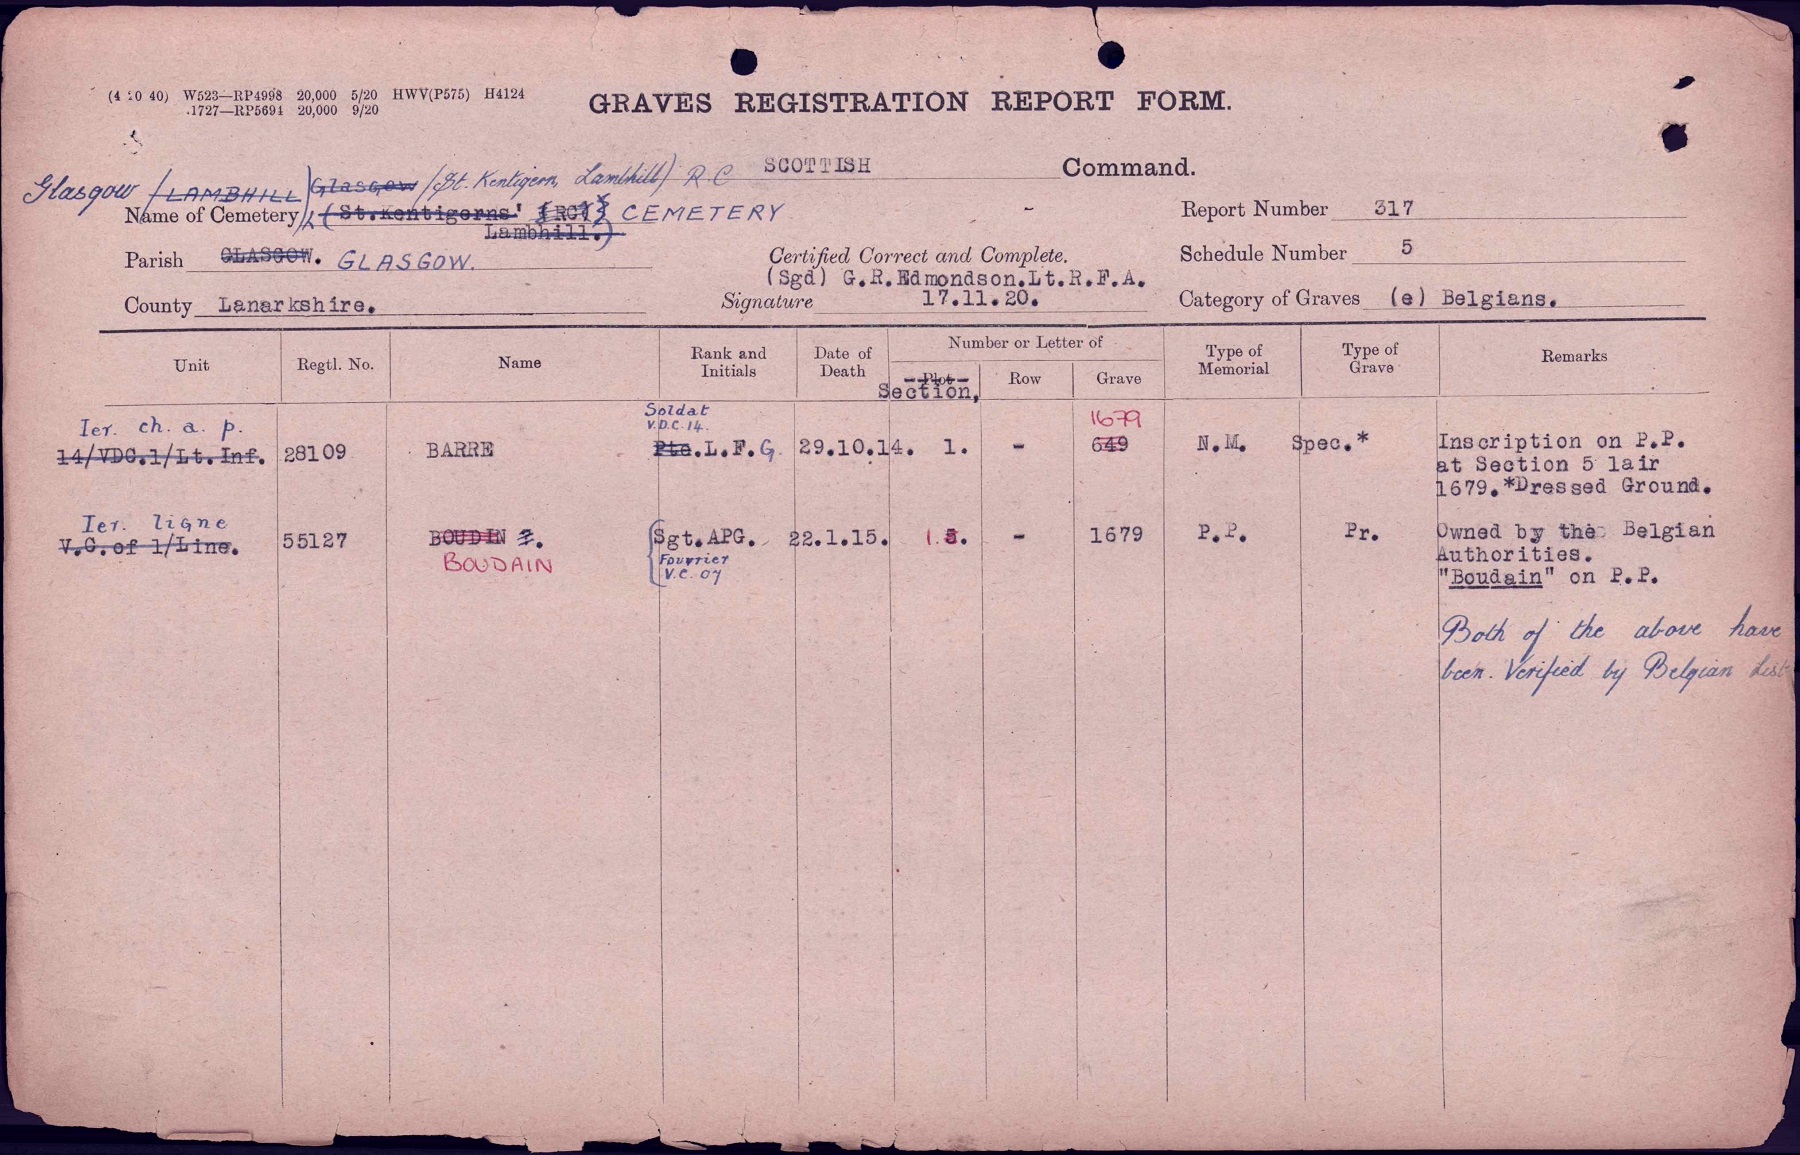 (4 10 40) W523—RP4998 20,000 5/20 HWV(P575) H4124
1727—RP5694 20,000 9/20
GRAVES REGISTRATION REPORT FORM.
SCOTTISH Command.
Glasgow (LAMBHILL) Glasgow (St. Kentigern, Lambhill) R.C
Name of Cemetery (St.Kentigerns' (RC) CEMETERY
Lambhill.)
Report Number 317
Parish GLASGOW. GLASGOW.
Certified Correct and Complete.
Schedule Number 5
(Sgd) G.R.Edmondson.Lt.R.F.A.
County Lanarkshire.
Signature 17.11.20.
Category of Graves (e) Belgians.
Unit Regtl. No. Name Rank and Initials Date of Death Number or Letter of Type of Memorial Type of Grave Remarks
Plot Row Grave
Section,
Ier. ch. a. p. Soldat 1679
V.D.C. 14.
14/VDC.1/Lt.Inf. 28109 BARRE Pte.L.F.G 29.10.14. 1. - 649 N.M. Spec.* Inscription on P.P.
at Section 5 lair
1679.*Dressed Ground.
Ier. ligne
V.C.of 1/Line. 55127 BOUDIN ?. Sgt.APG. 22.1.15. 1. 5. - 1679 P.P. Pr. Owned by the Belgian
BOUDAIN Fourrier Authorities.
V.C. 07 "Boudain" on P.P.
Both of the above have
been. Verified by Belgian List